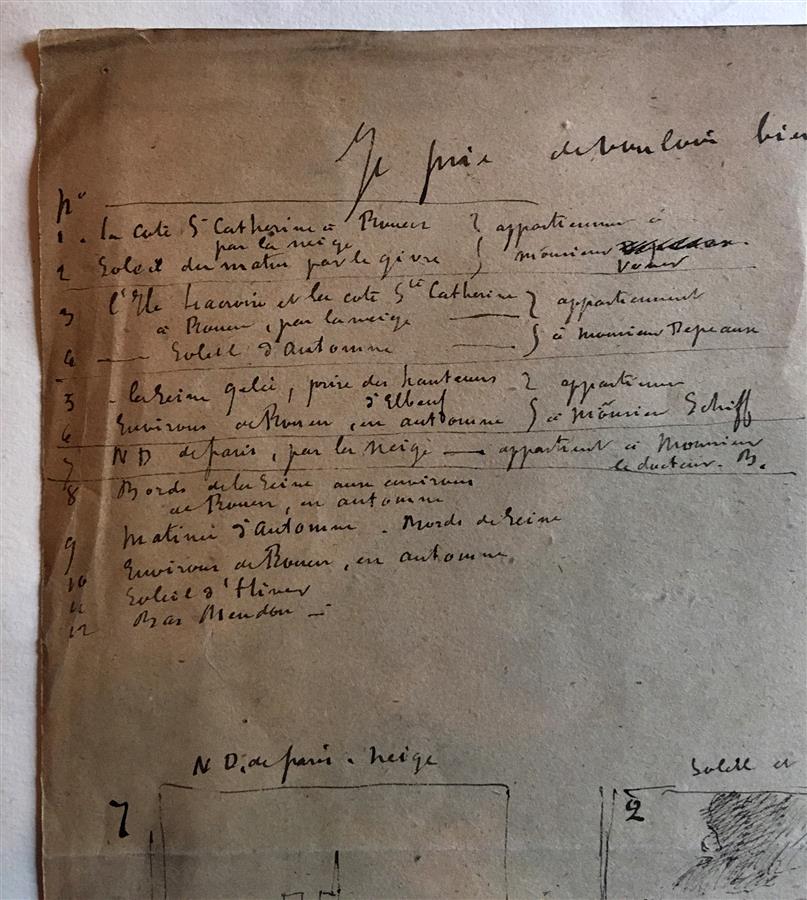 Je prie de vouloir bien
No
1. La cote Ste Catherine à Rouen } appartiennent à
par la neige
2 Soleil du matin par le givre } monsieur
3 l'Ile Lacroix et la cote Ste Catherine } appartiennent
à Rouen, par la neige —
4 — Soleil d'Automne — } à monsieur Depeaux
5 - la Seine gelée, prise des hauteurs } appartiennent
d'Elbeuf
6 Environs de Rouen, en automne } à Monsieur Schiff
7 N D de paris, par la neige — appartient à Monsieur
le docteur. B.
8 Bords de la Seine aux environs
de Rouen, en automne
9 Matinée d'Automne. Bords de Seine
10 Environs de Rouen, en automne
11 Soleil d'Hiver
12 Bas Meudon —
N D. de paris. neige
Soleil et
7
2